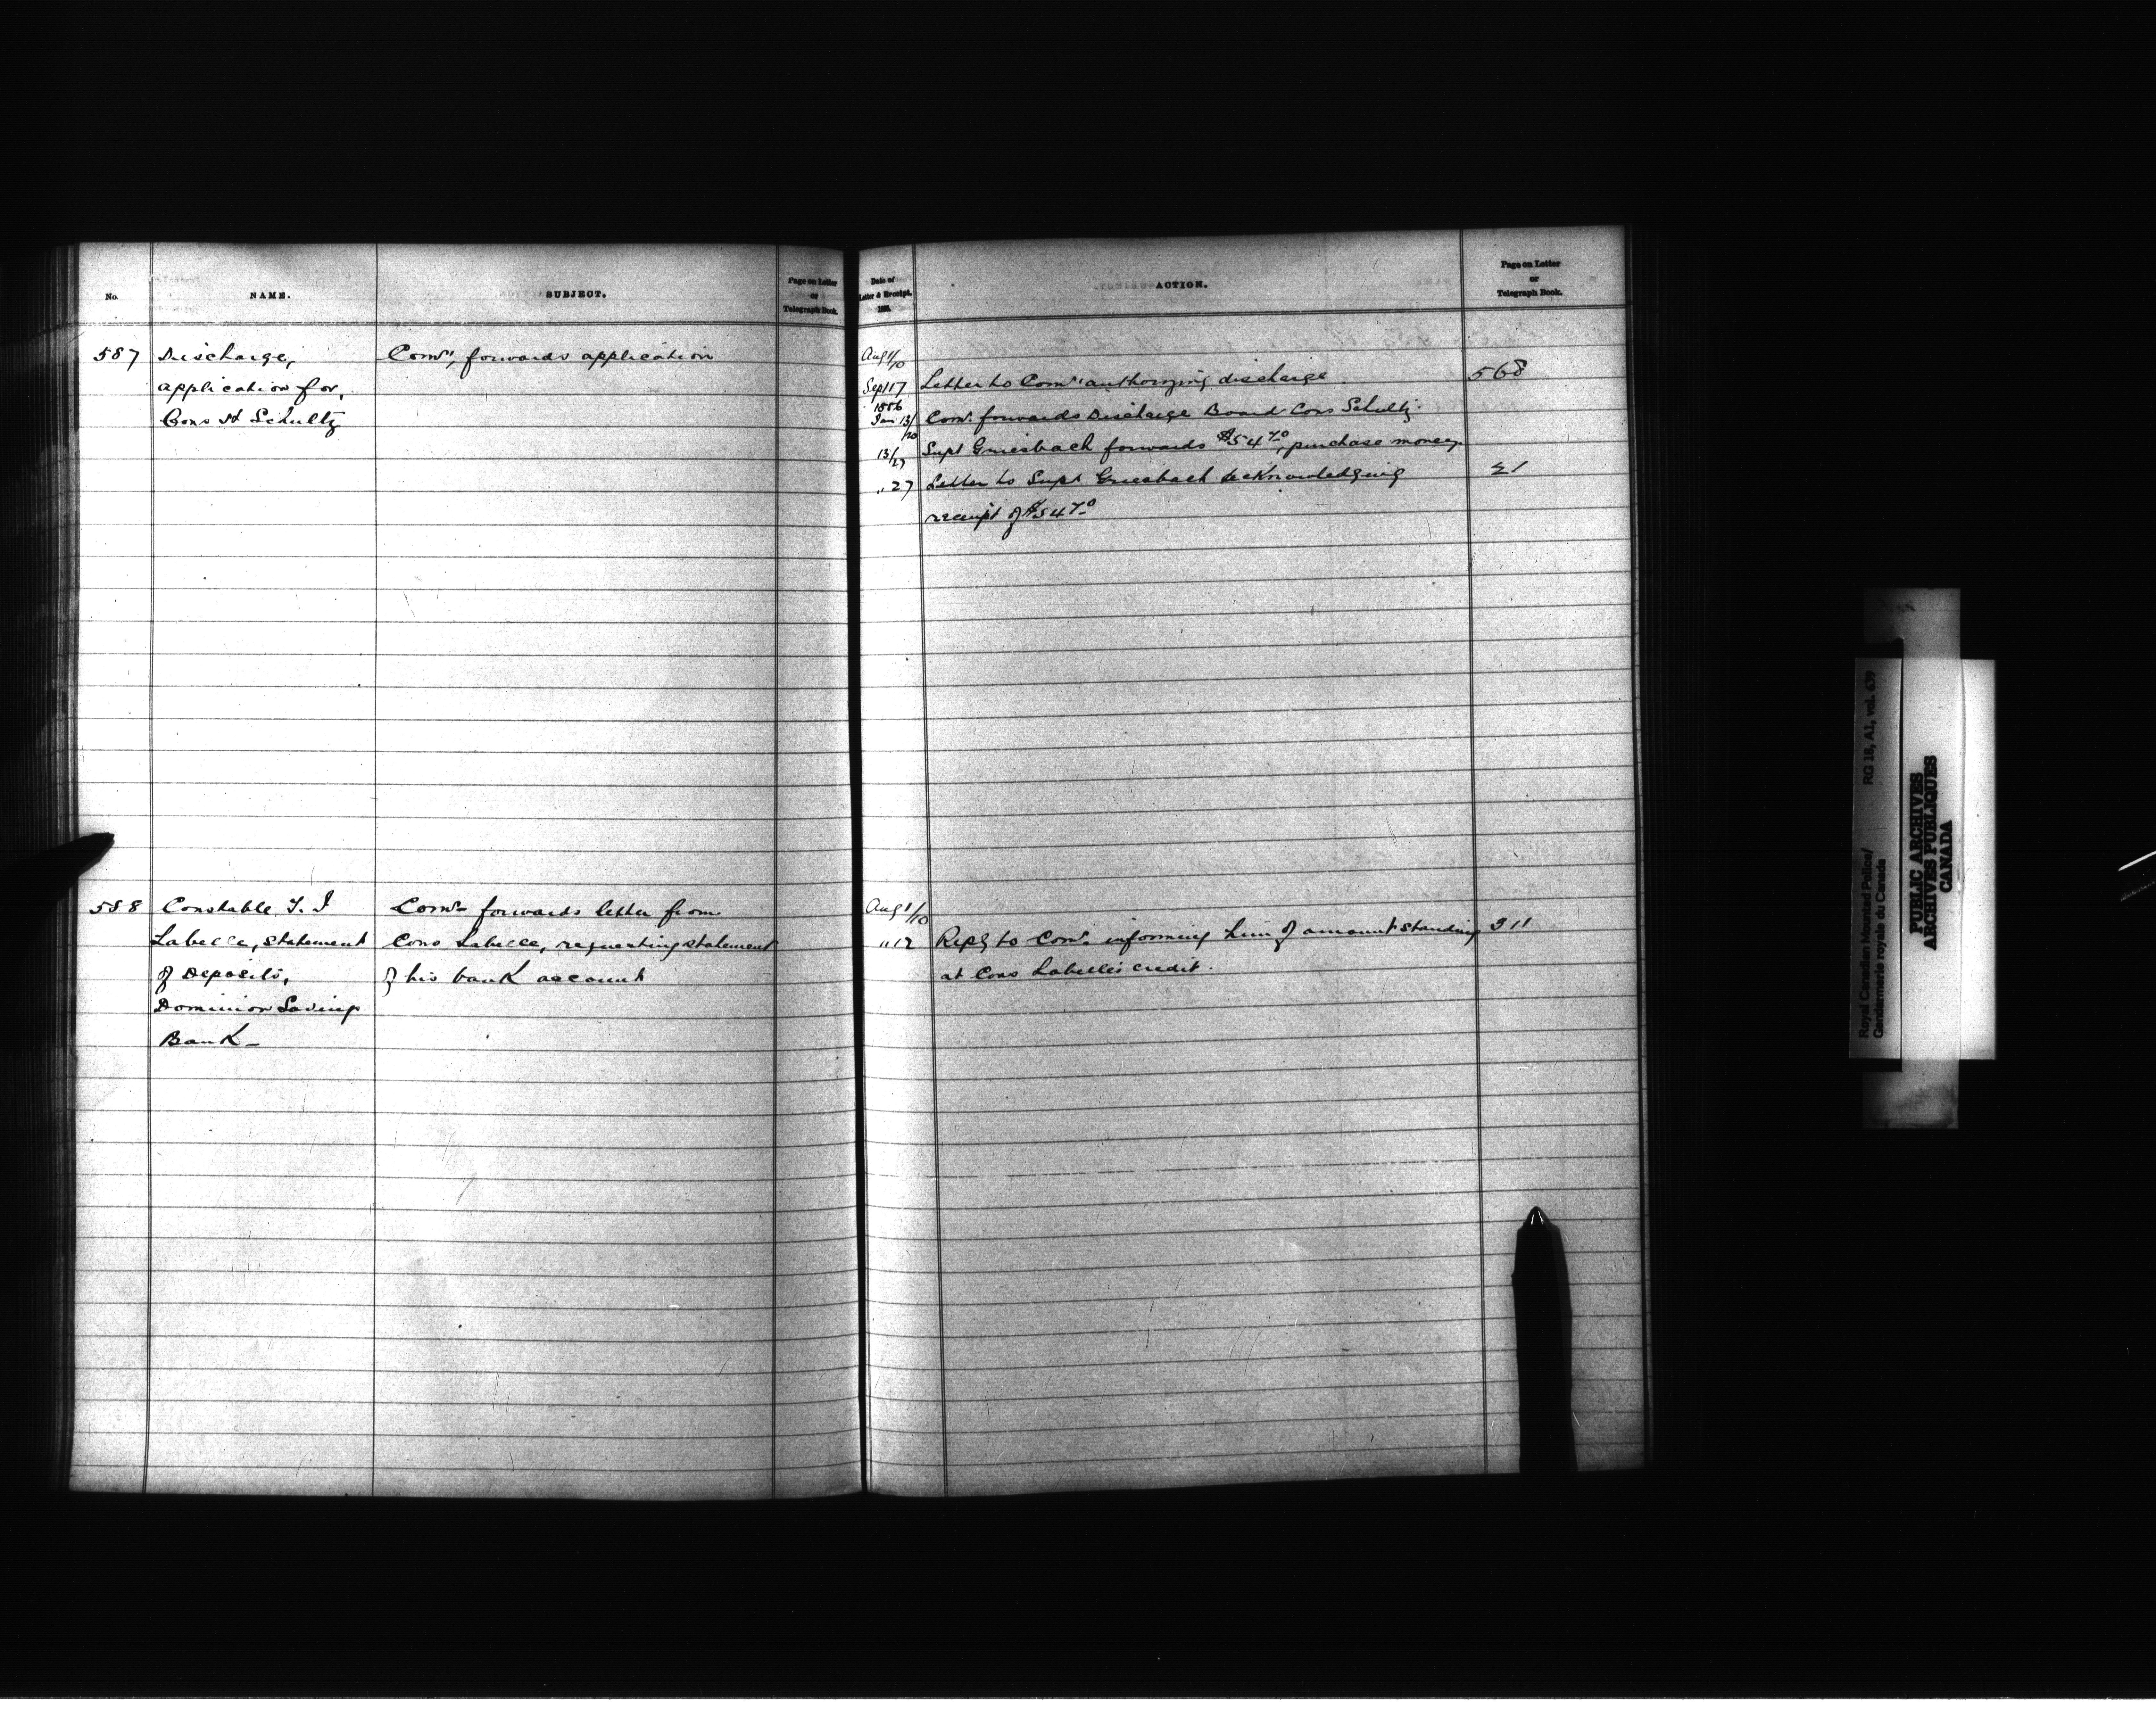 No.
NAME.
SUBJECT.
Page on Letter
or
Telegraph Book.
587
Discharge,
application for,
Cons Schultz
Comr, forwards application
588
Constable
Labelle, statement
of Deposits,
Dominion Savings
Bank
Comr forwards letter from
Cons Labelle, requesting statement
of his bank account
Date of
Letter & Receipt.
188
ACTION.
Page on Letter
or
Telegraph Book.
Aug 1/10
Sept 17 Letter to Comr authorizing discharge. 568
1886
Jan 13/20 Comr. forwards Discharge Board Cons Schultz.
13/27 Supt Griesbach forwards $54 70, purchase money.
" 27 Letter to Supt Griesbach acknowledging 21
receipt of $54 70
Aug 1/10
" 12 Reply to Comr. informing him of amount standing 311
at Cons Labelle's credit.
Royal Canadian Mounted Police/ RG 18, A1, vol. 639
Gendarmerie royale du Canada
PUBLIC ARCHIVES
ARCHIVES PUBLIQUES
CANADA